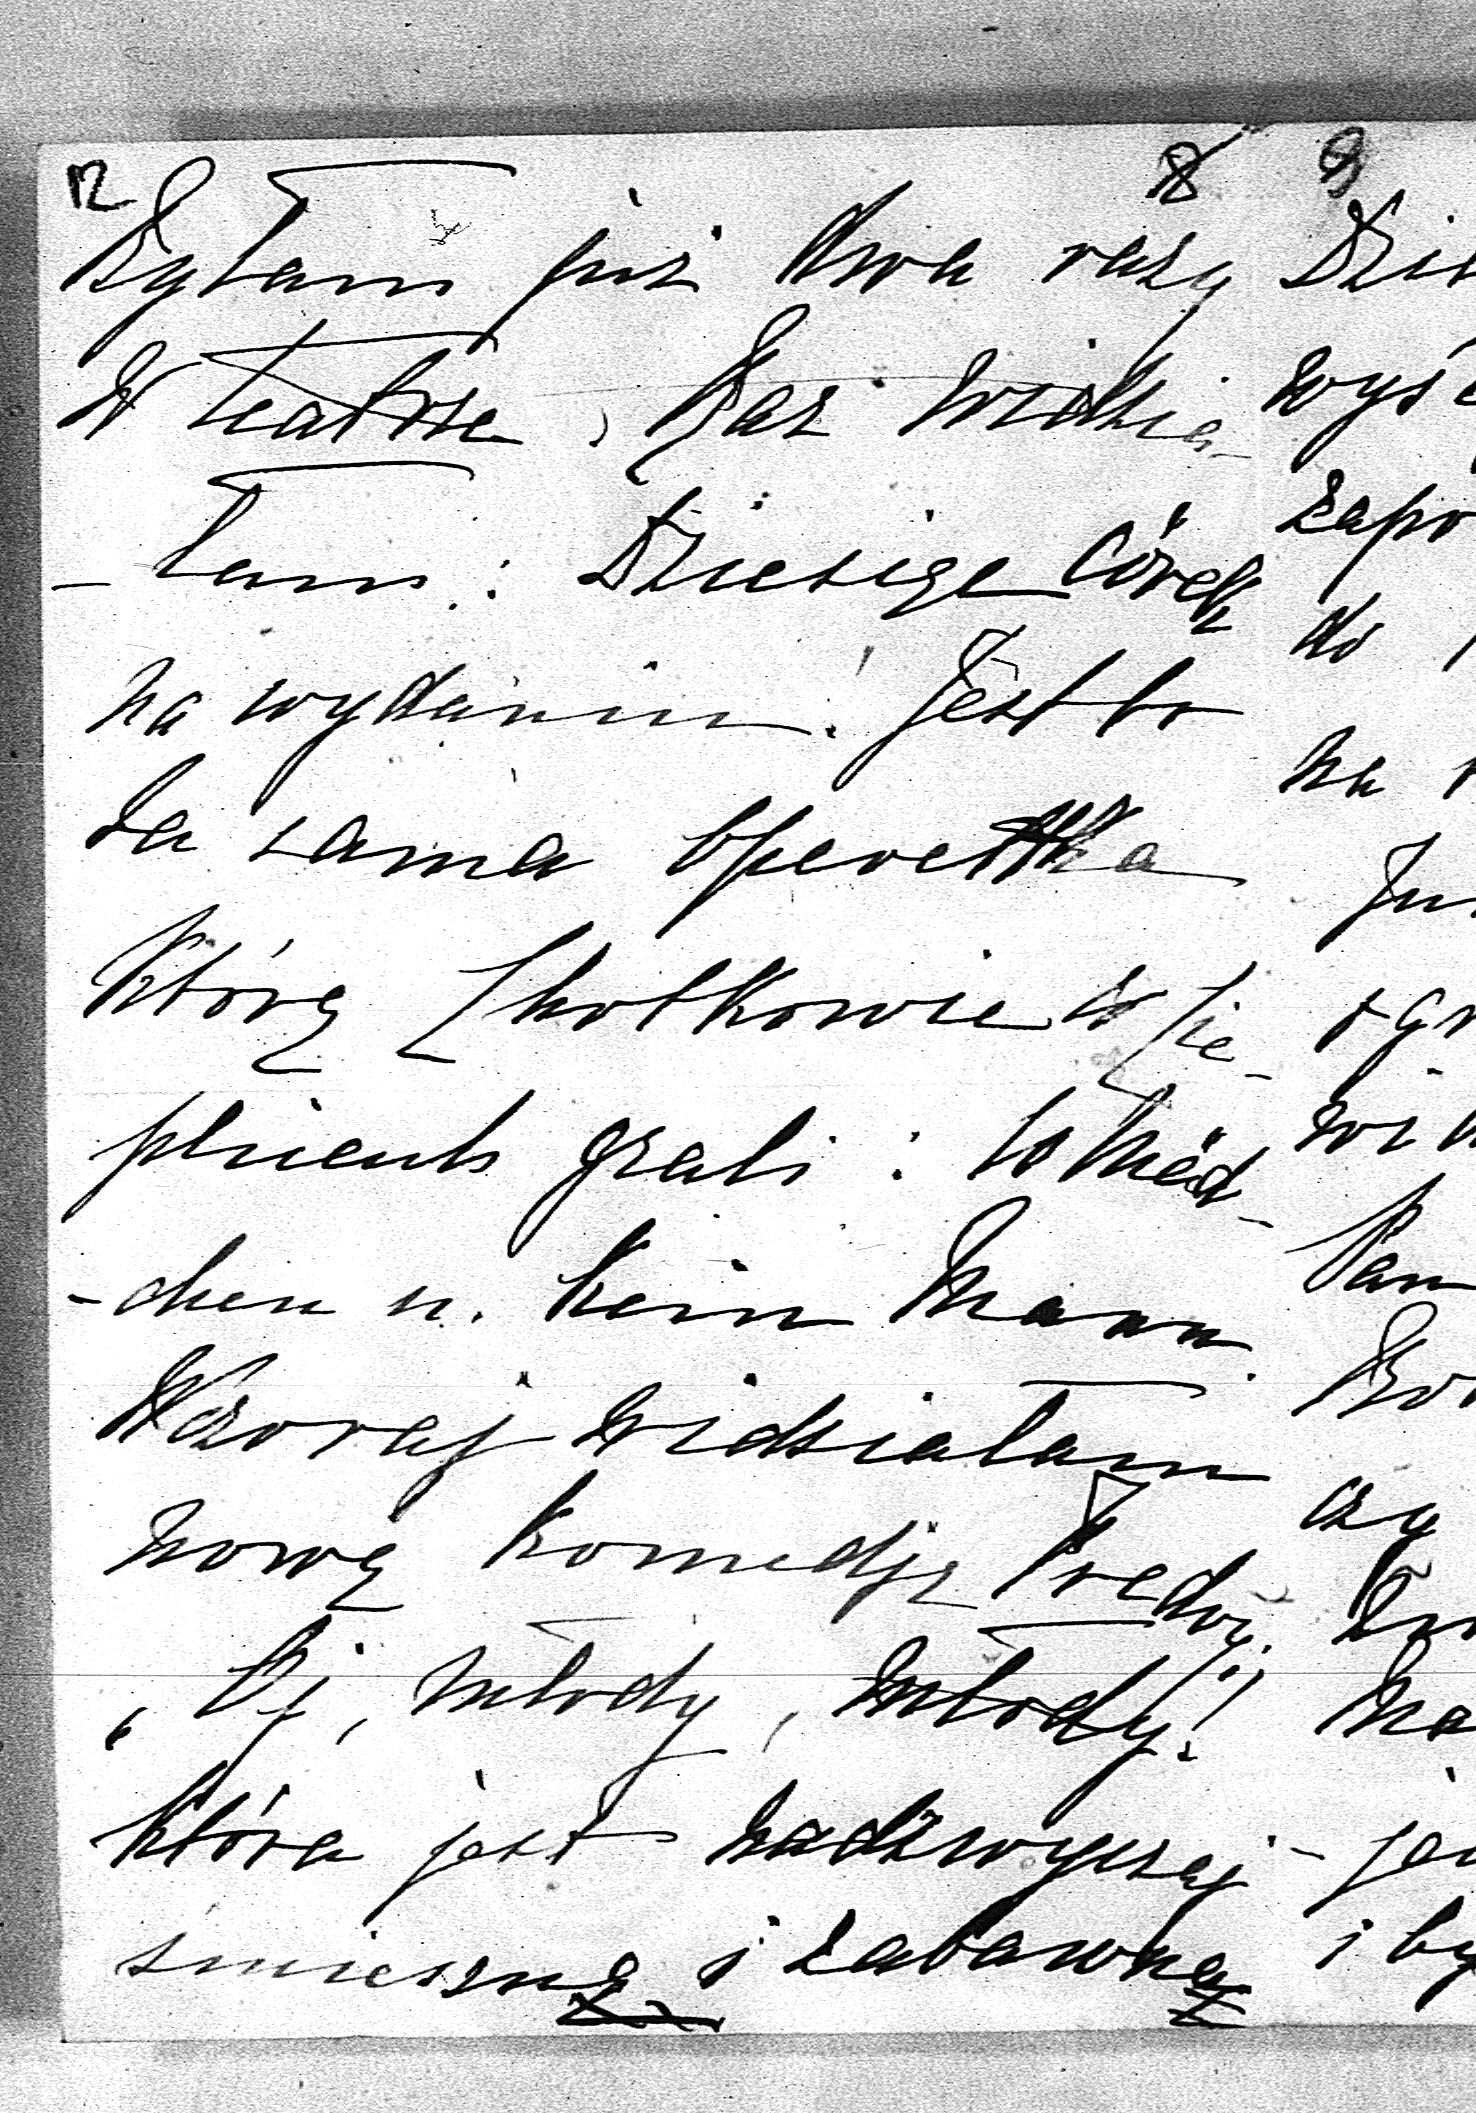 12
8 9
Byłam już dwa razy
w teatrze, Raz widzia-
-łam: Dziesięć córek
na wydaniu. Jest to
ta sama operettka
którą Chotkowie w Cie-
plicach grali: 10 Mäd-
-chen u. kein Mann.
Wczoraj widziałam
nową komedję Fredry.
„Oj, młody, młody!"
która jest nadzwyczaj
śmieszną i zabawną
wyś
zapo
do
na
czy
i by